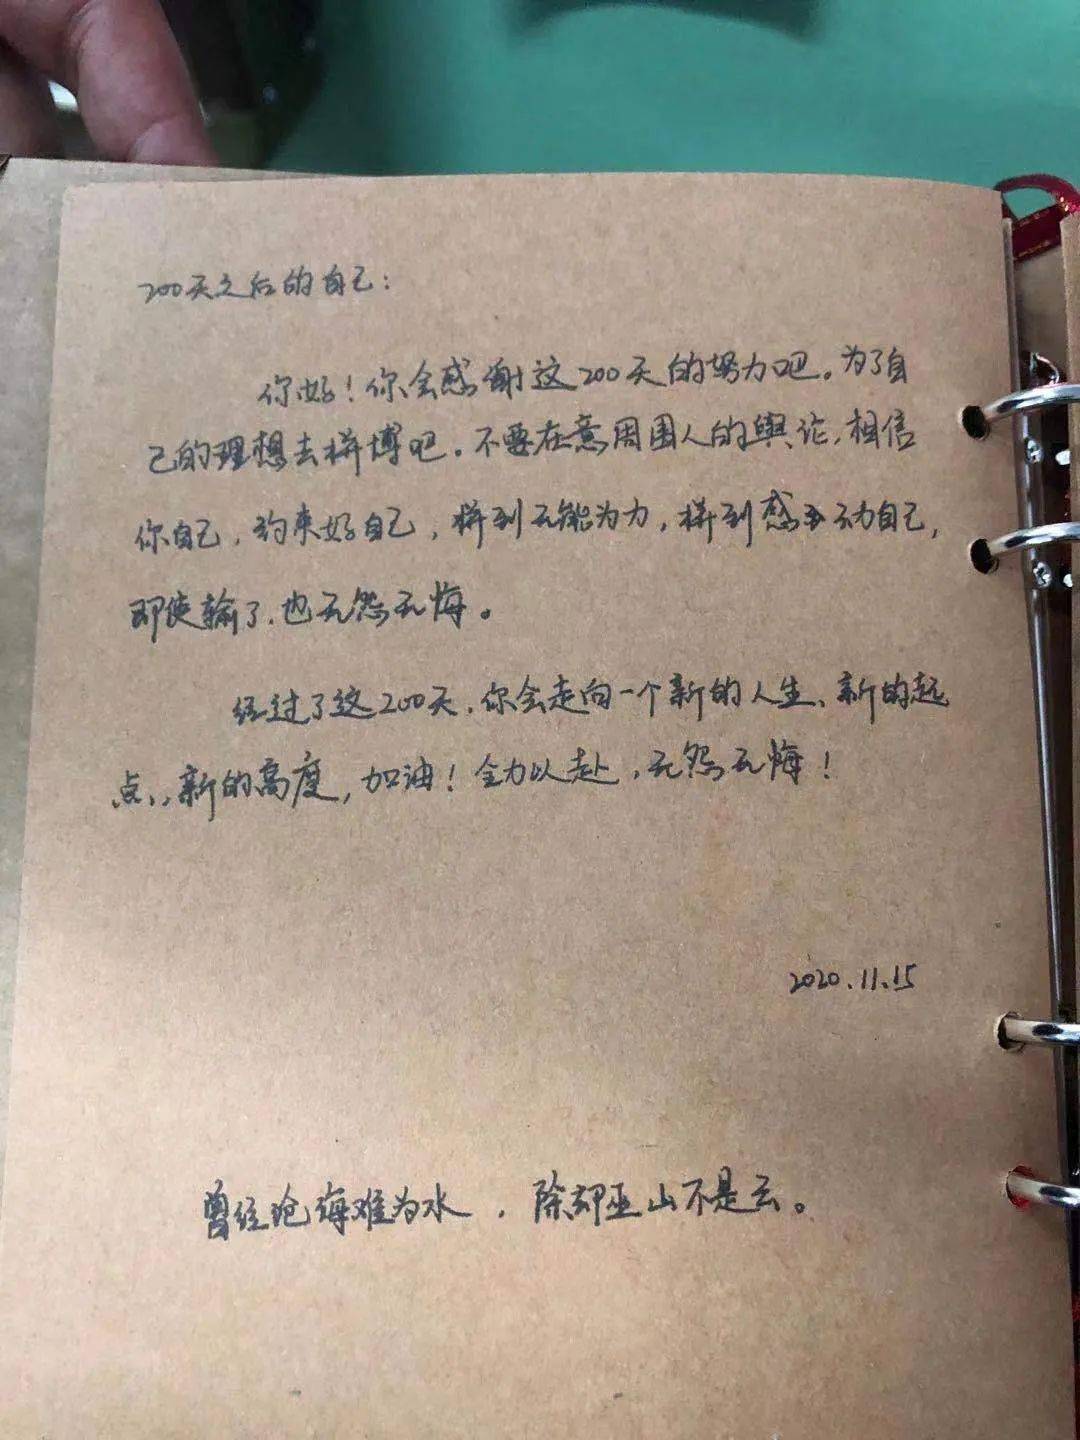 200天之后的自己：
你好！你会感谢这200天的努力吧。为了自
己的理想去拼博吧。不要在意周围人的舆论，相信
你自己，约束好自己，拼到无能为力，拼到感动自己，
即使输了，也无怨无悔。
经过了这200天，你会走向一个新的人生、新的起
点、新的高度，加油！全力以赴，无怨无悔！
2020.11.15
曾经沧海难为水，除却巫山不是云。